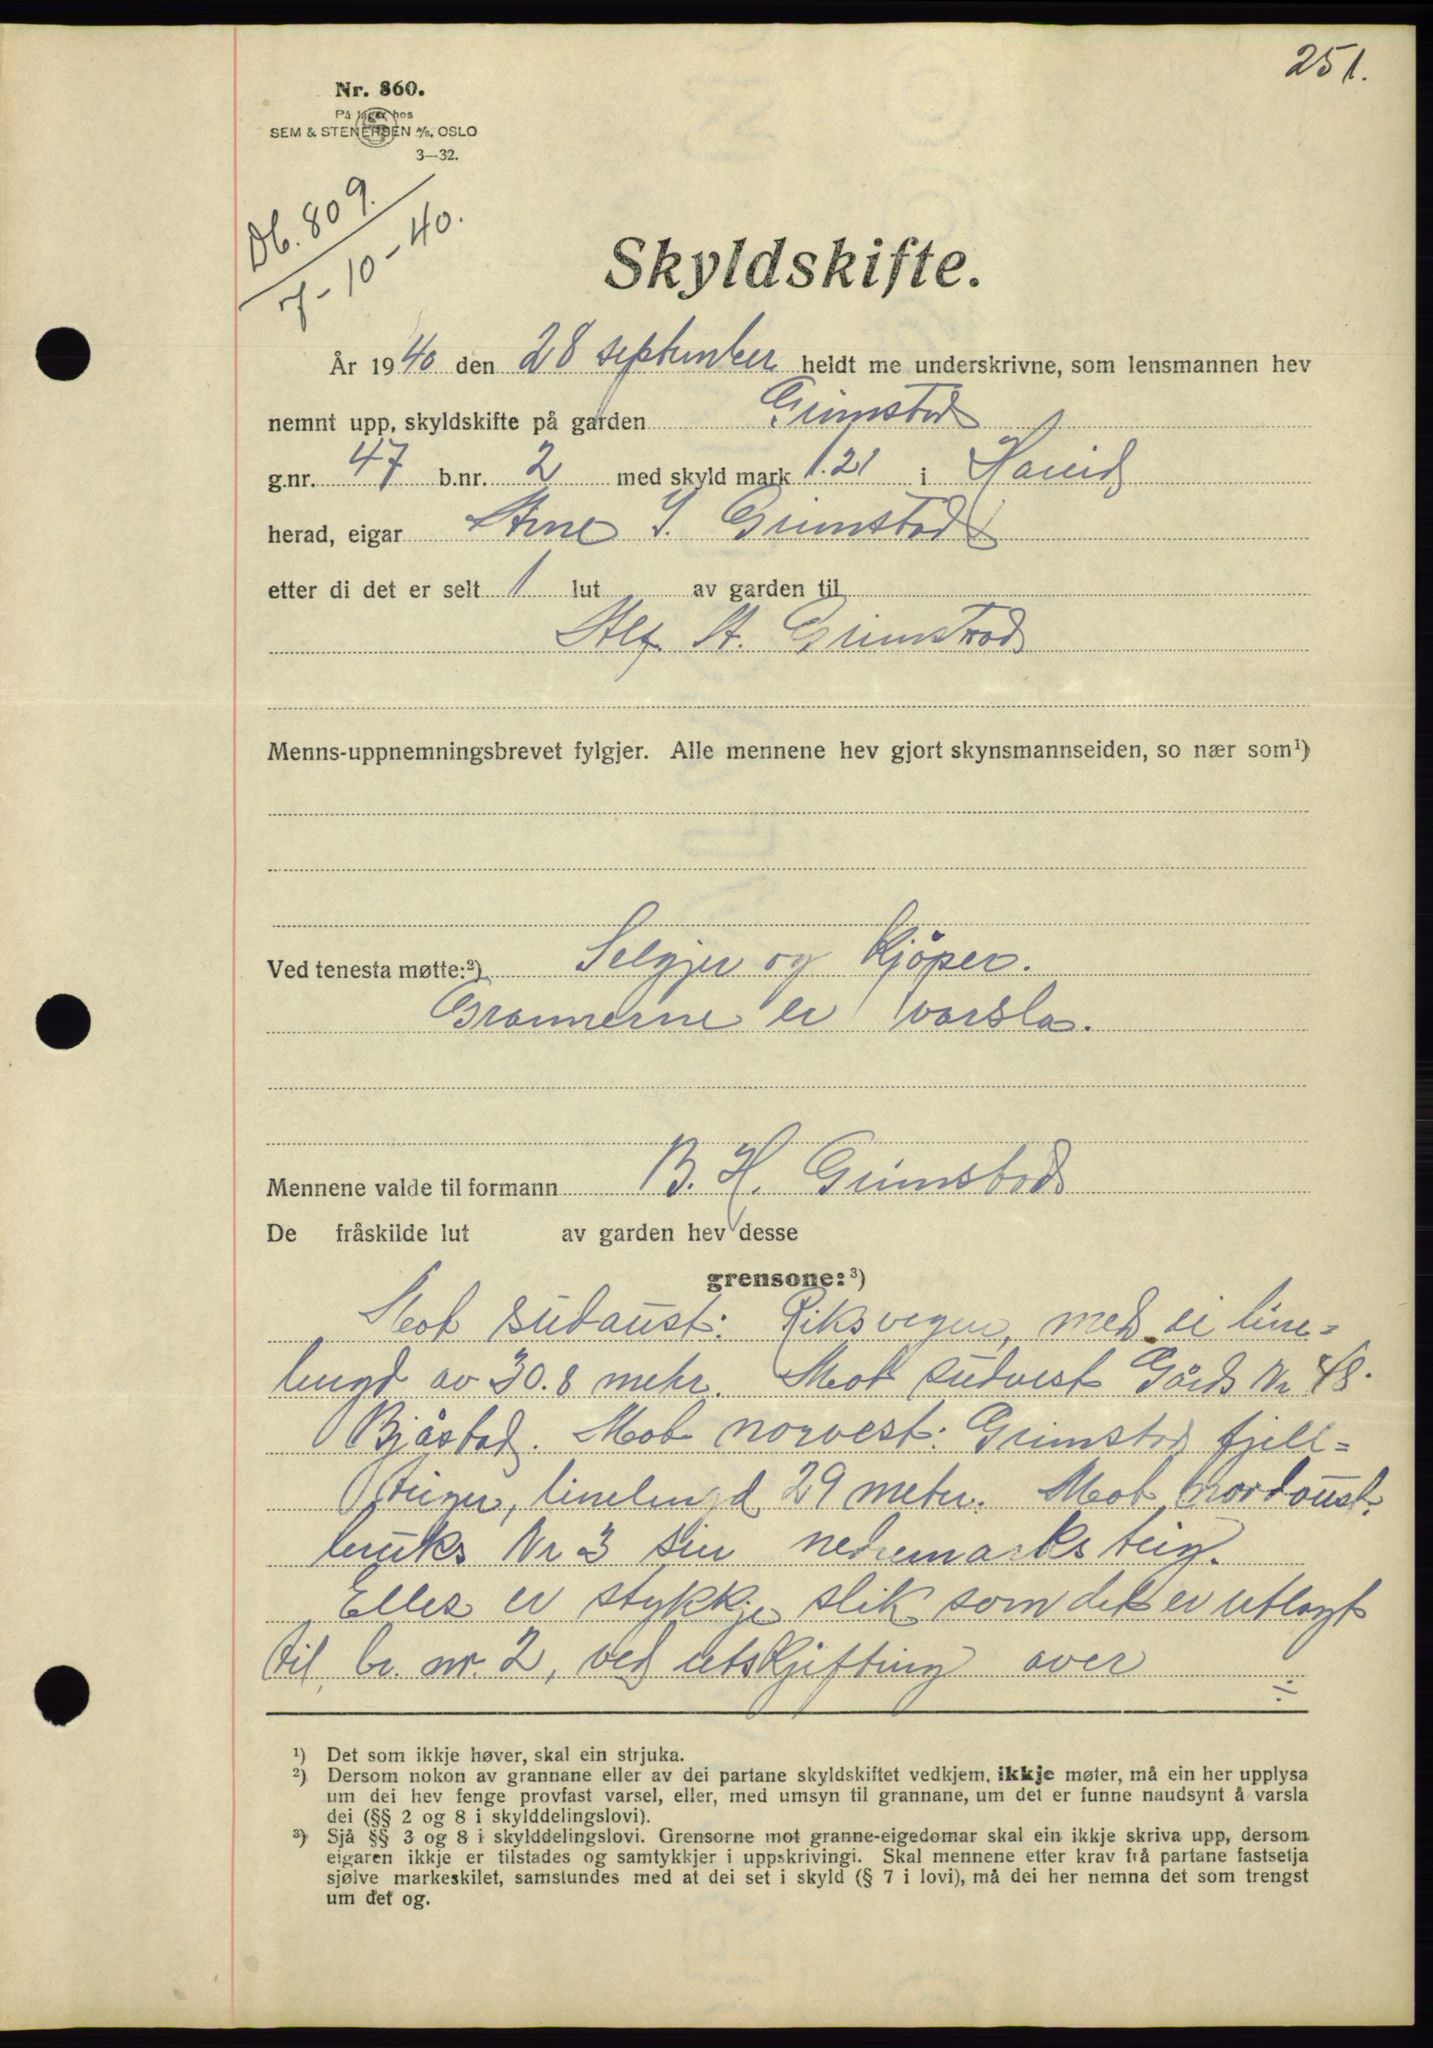 251.
Nr. 860.
På lager hos
SEM & STENERSEN A/S, OSLO
3—32.
Db. 809.
7-10-40.
Skyldskifte.
År 1940 den 28 september heldt me underskrivne, som lensmannen hev
nemnt upp, skyldskifte på garden Grimstad
g.nr. 47 b.nr. 2 med skyld mark 1.21 i Hareid
herad, eigar Arne I. Grimstad
etter di det er selt 1 lut av garden til
Alf A. Grimstad
Menns-uppnemningsbrevet fylgjer. Alle mennene hev gjort skynsmannseiden, so nær som¹)
Ved tenesta møtte:²) Selgjer og kjöper.
Grannerne er varsla.
Mennene valde til formann B. H. Grimstad
De fråskilde lut av garden hev desse
grensone:³)
Mot sudaust: Riksvegen, med ei line=
lengd av 30.8 meter. Mot sudvest Gårds Nr 48.
Bjåstad. Mot norvest: Grimstad fjell=
teigen, linelengd 29 meter. Mot nordaust.
bruks Nr 3 sin nedremarksteig.
Elles er stykkje slik som det er utlagt
til br. nr. 2, ved utskjifting over
¹) Det som ikkje høver, skal ein strjuka.
²) Dersom nokon av grannane eller av dei partane skyldskiftet vedkjem, ikkje møter, må ein her upplysa
um dei hev fenge provfast varsel, eller, med umsyn til grannane, um det er funne naudsynt å varsla
dei (§§ 2 og 8 i skylddelingslovi).
³) Sjå §§ 3 og 8 i skylddelingslovi. Grensorne mot granne-eigedomar skal ein ikkje skriva upp, dersom
eigaren ikkje er tilstades og samtykkjer i uppskrivingi. Skal mennene etter krav frå partane fastsetja
sjølve markeskilet, samstundes med at dei set i skyld (§ 7 i lovi), må dei her nemna det som trengst
um det og.